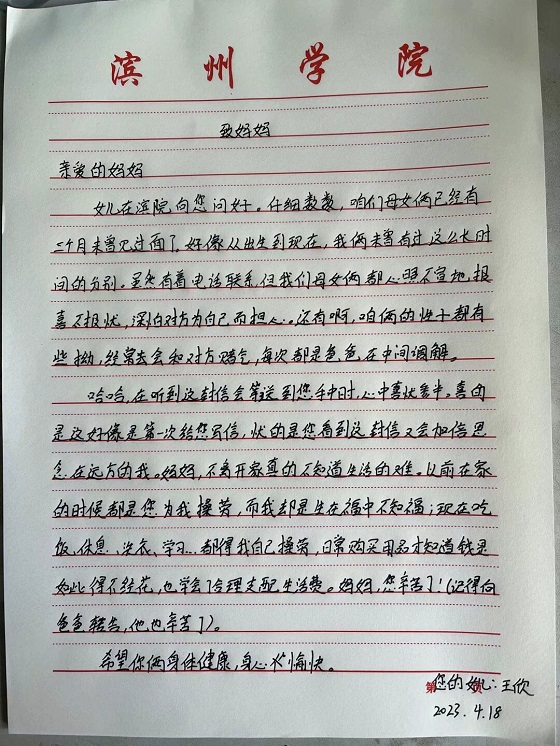 滨州学院
致妈妈
亲爱的妈妈
女儿在滨院向您问好。仔细数数，咱们母女俩已经有
三个月未曾见过面了，好像从出生到现在，我俩未曾有过这么长时
间的分别。虽然有着电话联系，但我们母女俩都心照不宣地，报
喜不报忧，深怕对方为自己而担心。还有啊，咱俩的性子都有
些拗，经常去会和对方赌气，每次都是爸爸在中间调解。
哈哈，在听到这封信会寄送到您手中时，心中喜忧参半。喜的
是这好像是第一次给您写信，忧的是您看到这封信又会加倍思
念在远方的我。妈妈，不离开家真的不知道生活的难。以前在家
的时候都是您为我操劳，而我却是生在福中不知福；现在吃
饭、休息、洗衣、学习…都得我自己操劳，日常购买用品才知道钱是
如此得不经花，也学会了合理支配生活费。妈妈，您辛苦了！（记得向
爸爸转告，他也辛苦了）。
希望你俩身体健康，身心愉快。
您的女儿：王欣
2023.4.18